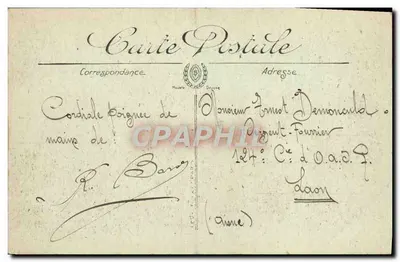 Carte Postale
Correspondance
Adresse
Cordiale poignée de
mains de :
Monsieur Ernest
Sergent-Fourrier
127e Cie d'O.A.J.
Laon
(Aisne)
CPARHPI